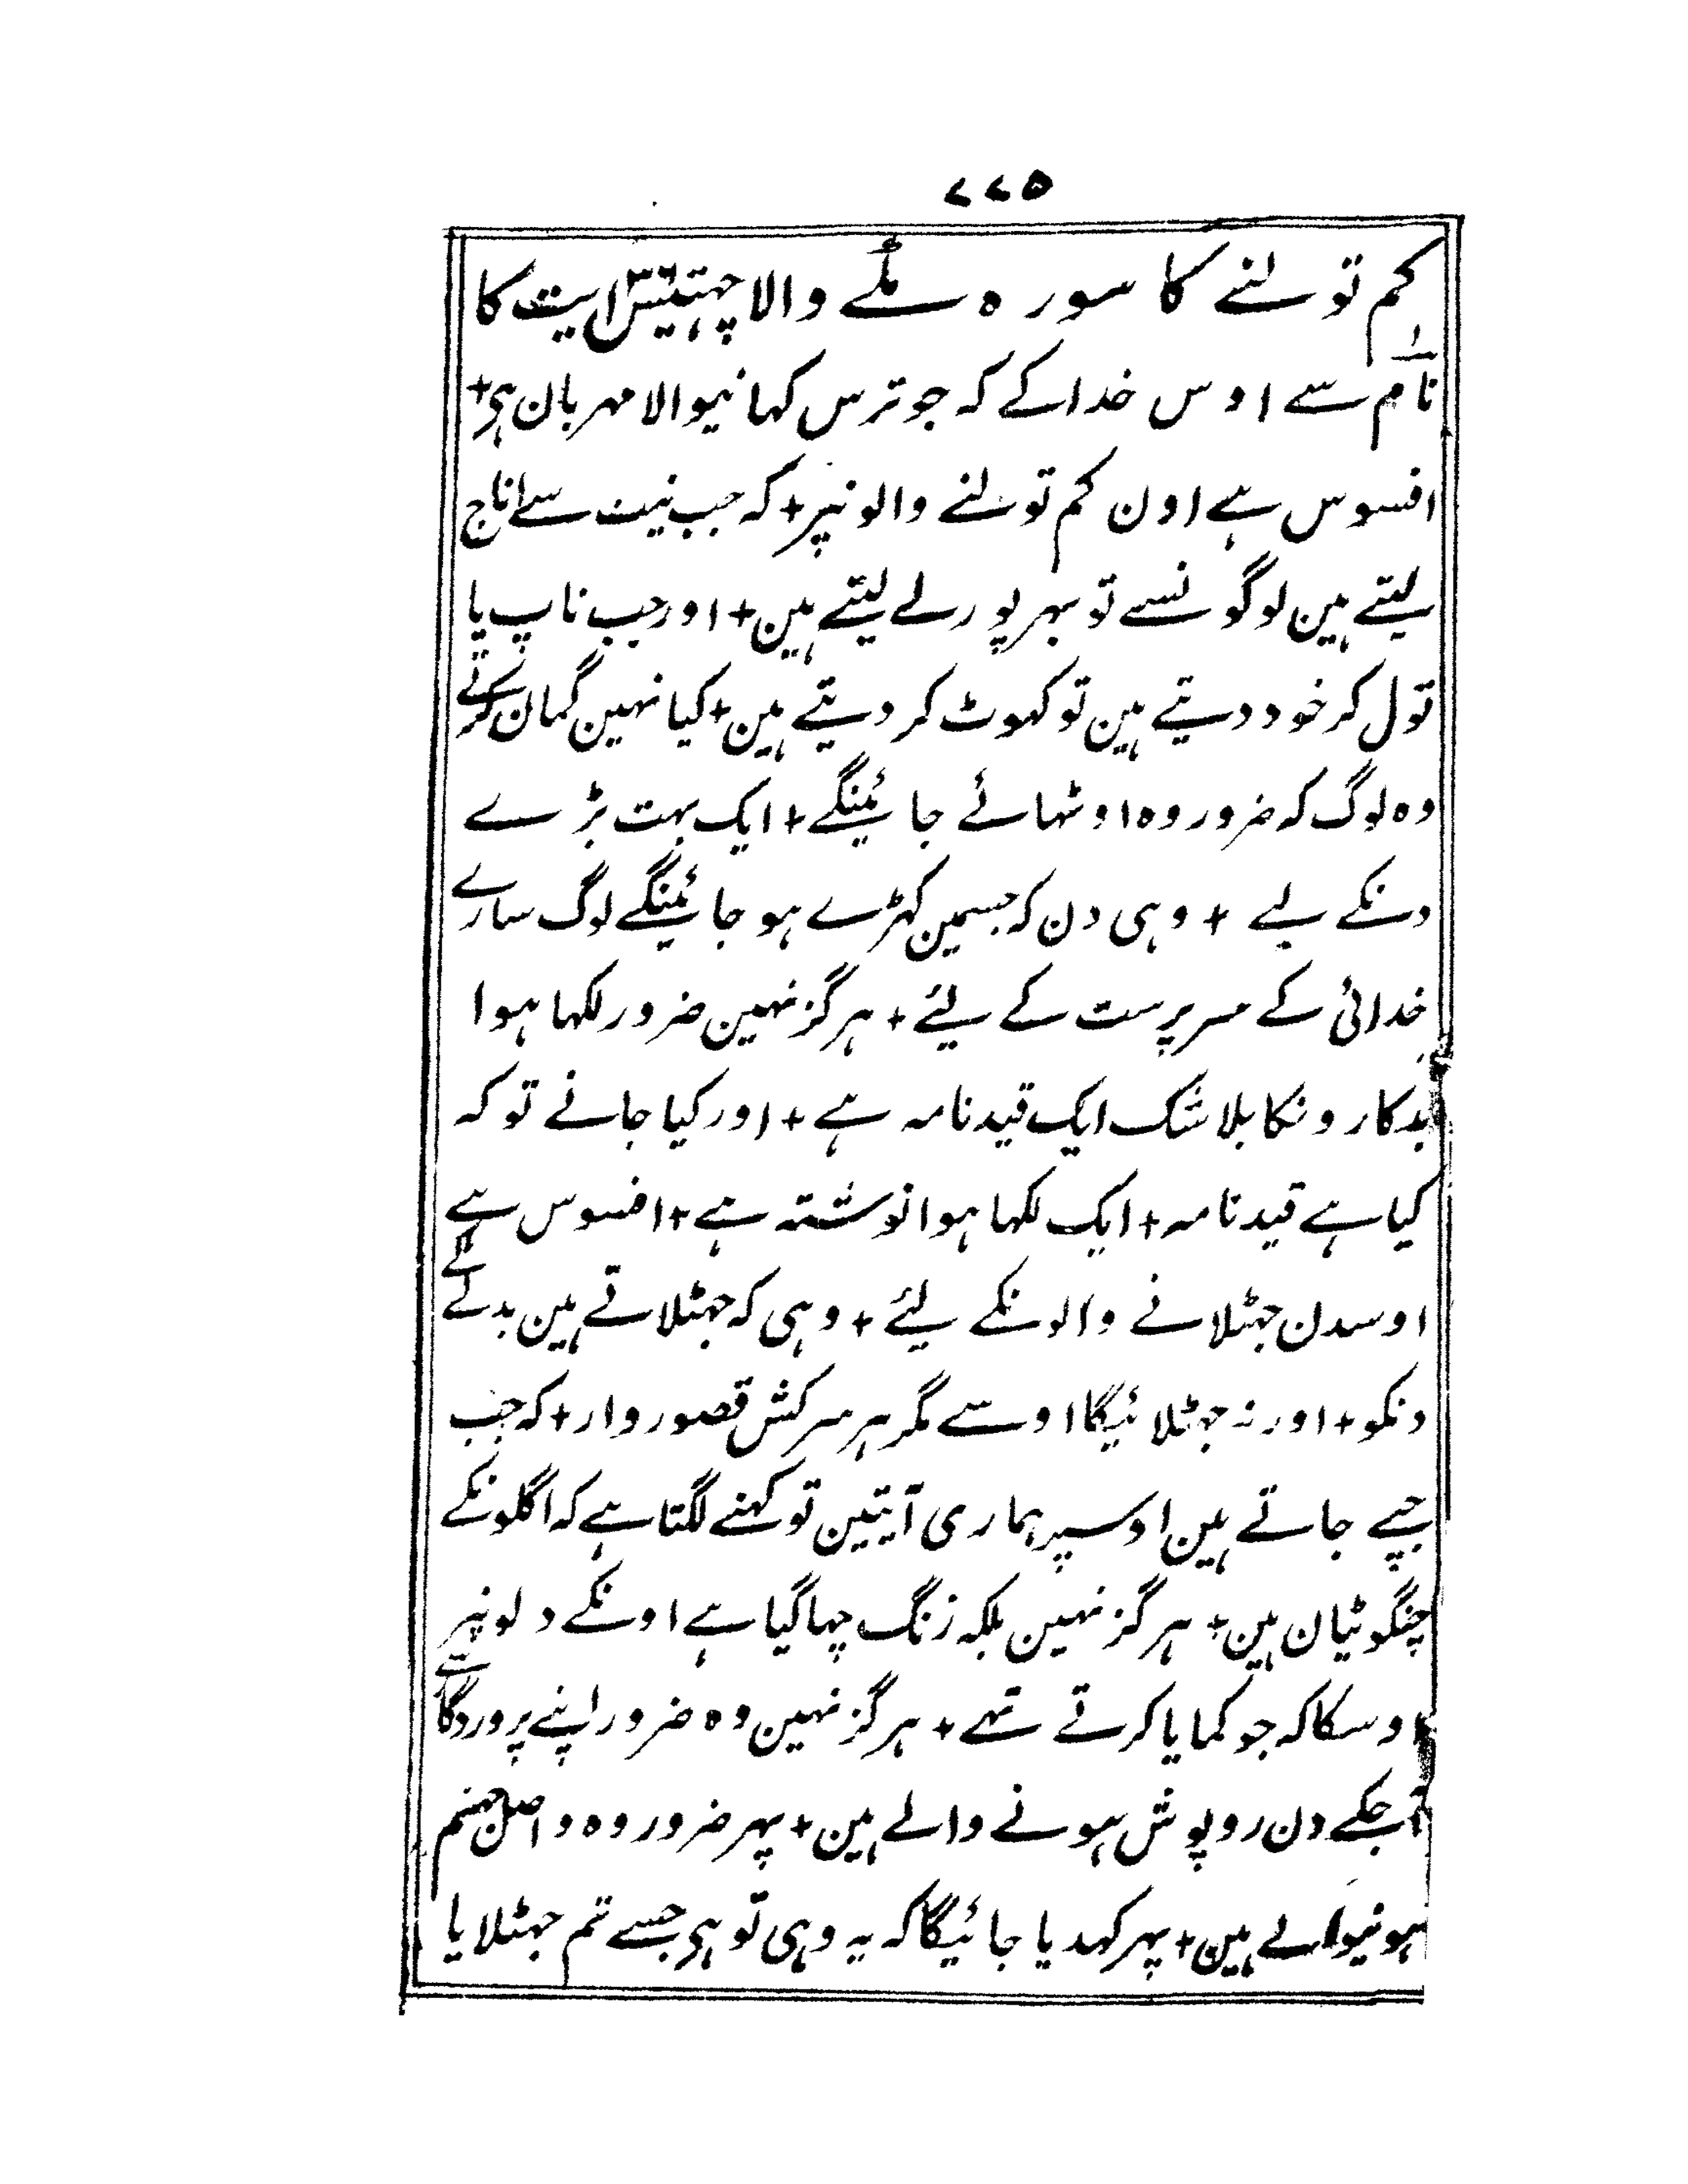 ۷۷۵
کم تولنے کا سورہ مکّے والا چہتیس ۳۶ ایت کا
نام سے اوس خدا کے کہ جو ترس کہانیوالا مہربان ہی +
افسوس ہے اون کم تولنے والونپر + کہ جب نیت سے اناج
لیتے ہین لوگونسے تو بہرپور لے لیتے ہین + اور جب ناپ یا
تول کر خود دیتے ہین تو کہوٹ کر دیتے ہین + کیا نہین گمان کرتے
وہ لوگ کہ ضرور وہ اوٹہائے جائینگے + ایک بہت بڑے
دنکے لیے + وہی دن کہ جسمین کہڑے ہو جائینگے لوگ سارے
خدائی کے سرپرست کے لیئے + ہرگز نہین ضرور لکہا ہوا
بدکارونکا بلاشک ایک قیدنامہ ہے + اور کیا جانے تو کہ
کیا ہے قیدنامہ + ایک لکہا ہوا نوشتہ ہے + افسوس ہے
اوسدن جہٹلانے والونکے لیئے + وہی کہ جہٹلاتے ہین بدلے کے
دنکو + اور نہ جہٹلائیگا اوسے مگر ہر سرکش قصوروار + کہ جب
جپے جاتے ہین اوسپر ہماری آیتین تو کہنے لگتا ہے کہ اگلونکے
چنگوٹیان ہین + ہرگز نہین بلکہ زنگ چہاگیا ہے اونکے دلونپر
اوسکا کہ جو کمایا کرتے تہے + ہرگز نہین وہ ضرور اپنے پروردگار سے
آجکے دن روپوش ہونے والے ہین + پہر ضرور وہ واصل جہنم
ہونیوالے ہین + پہر کہدیا جائیگا کہ یہ وہی تو ہی جسے تم جہٹلایا